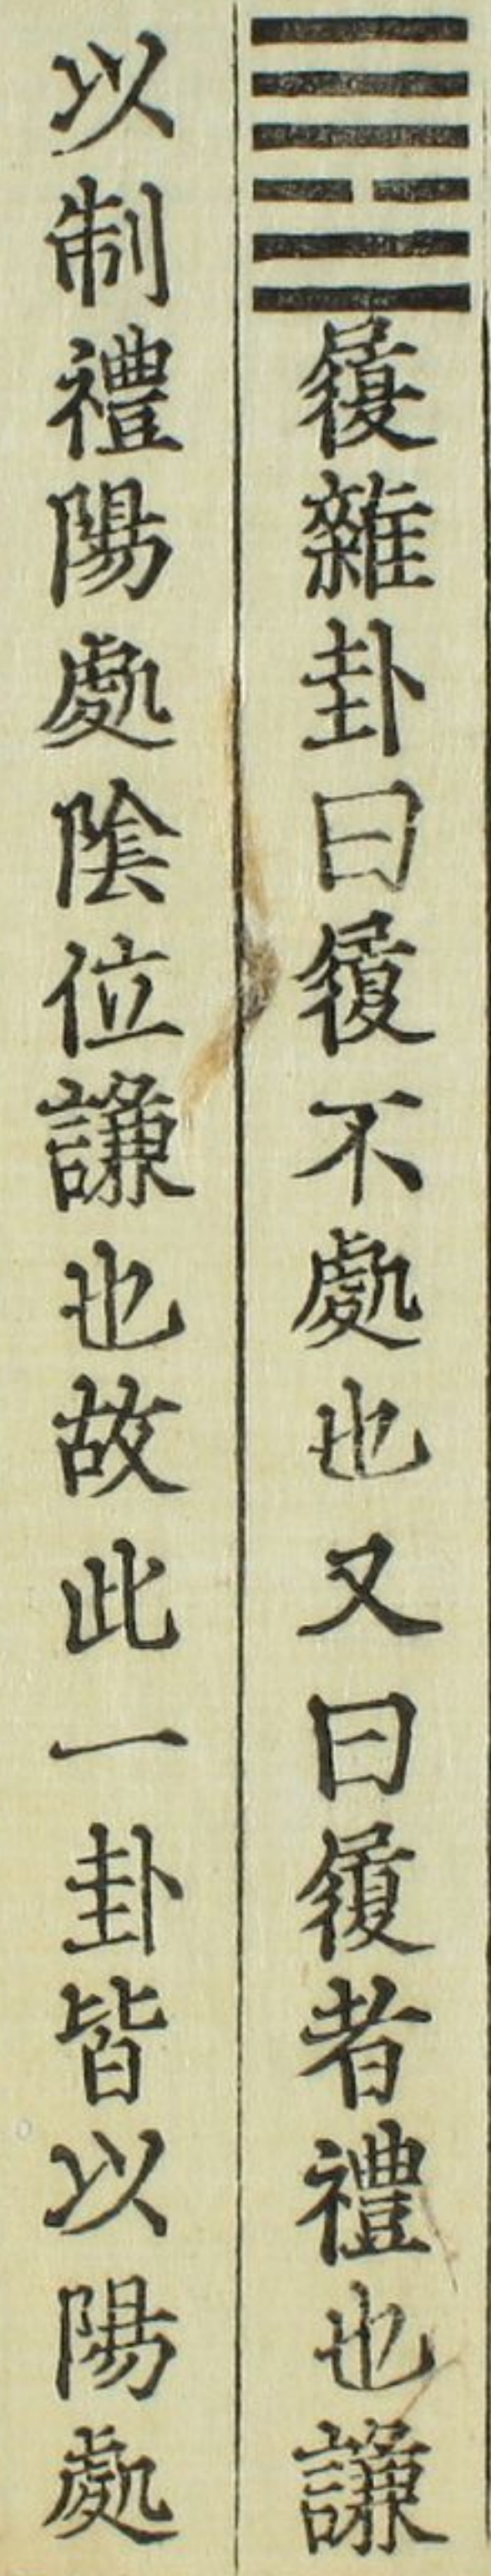 ䷉履雜卦曰履不處也又曰履者禮也謙
以制禮陽處陰位謙也故此一卦皆以陽處